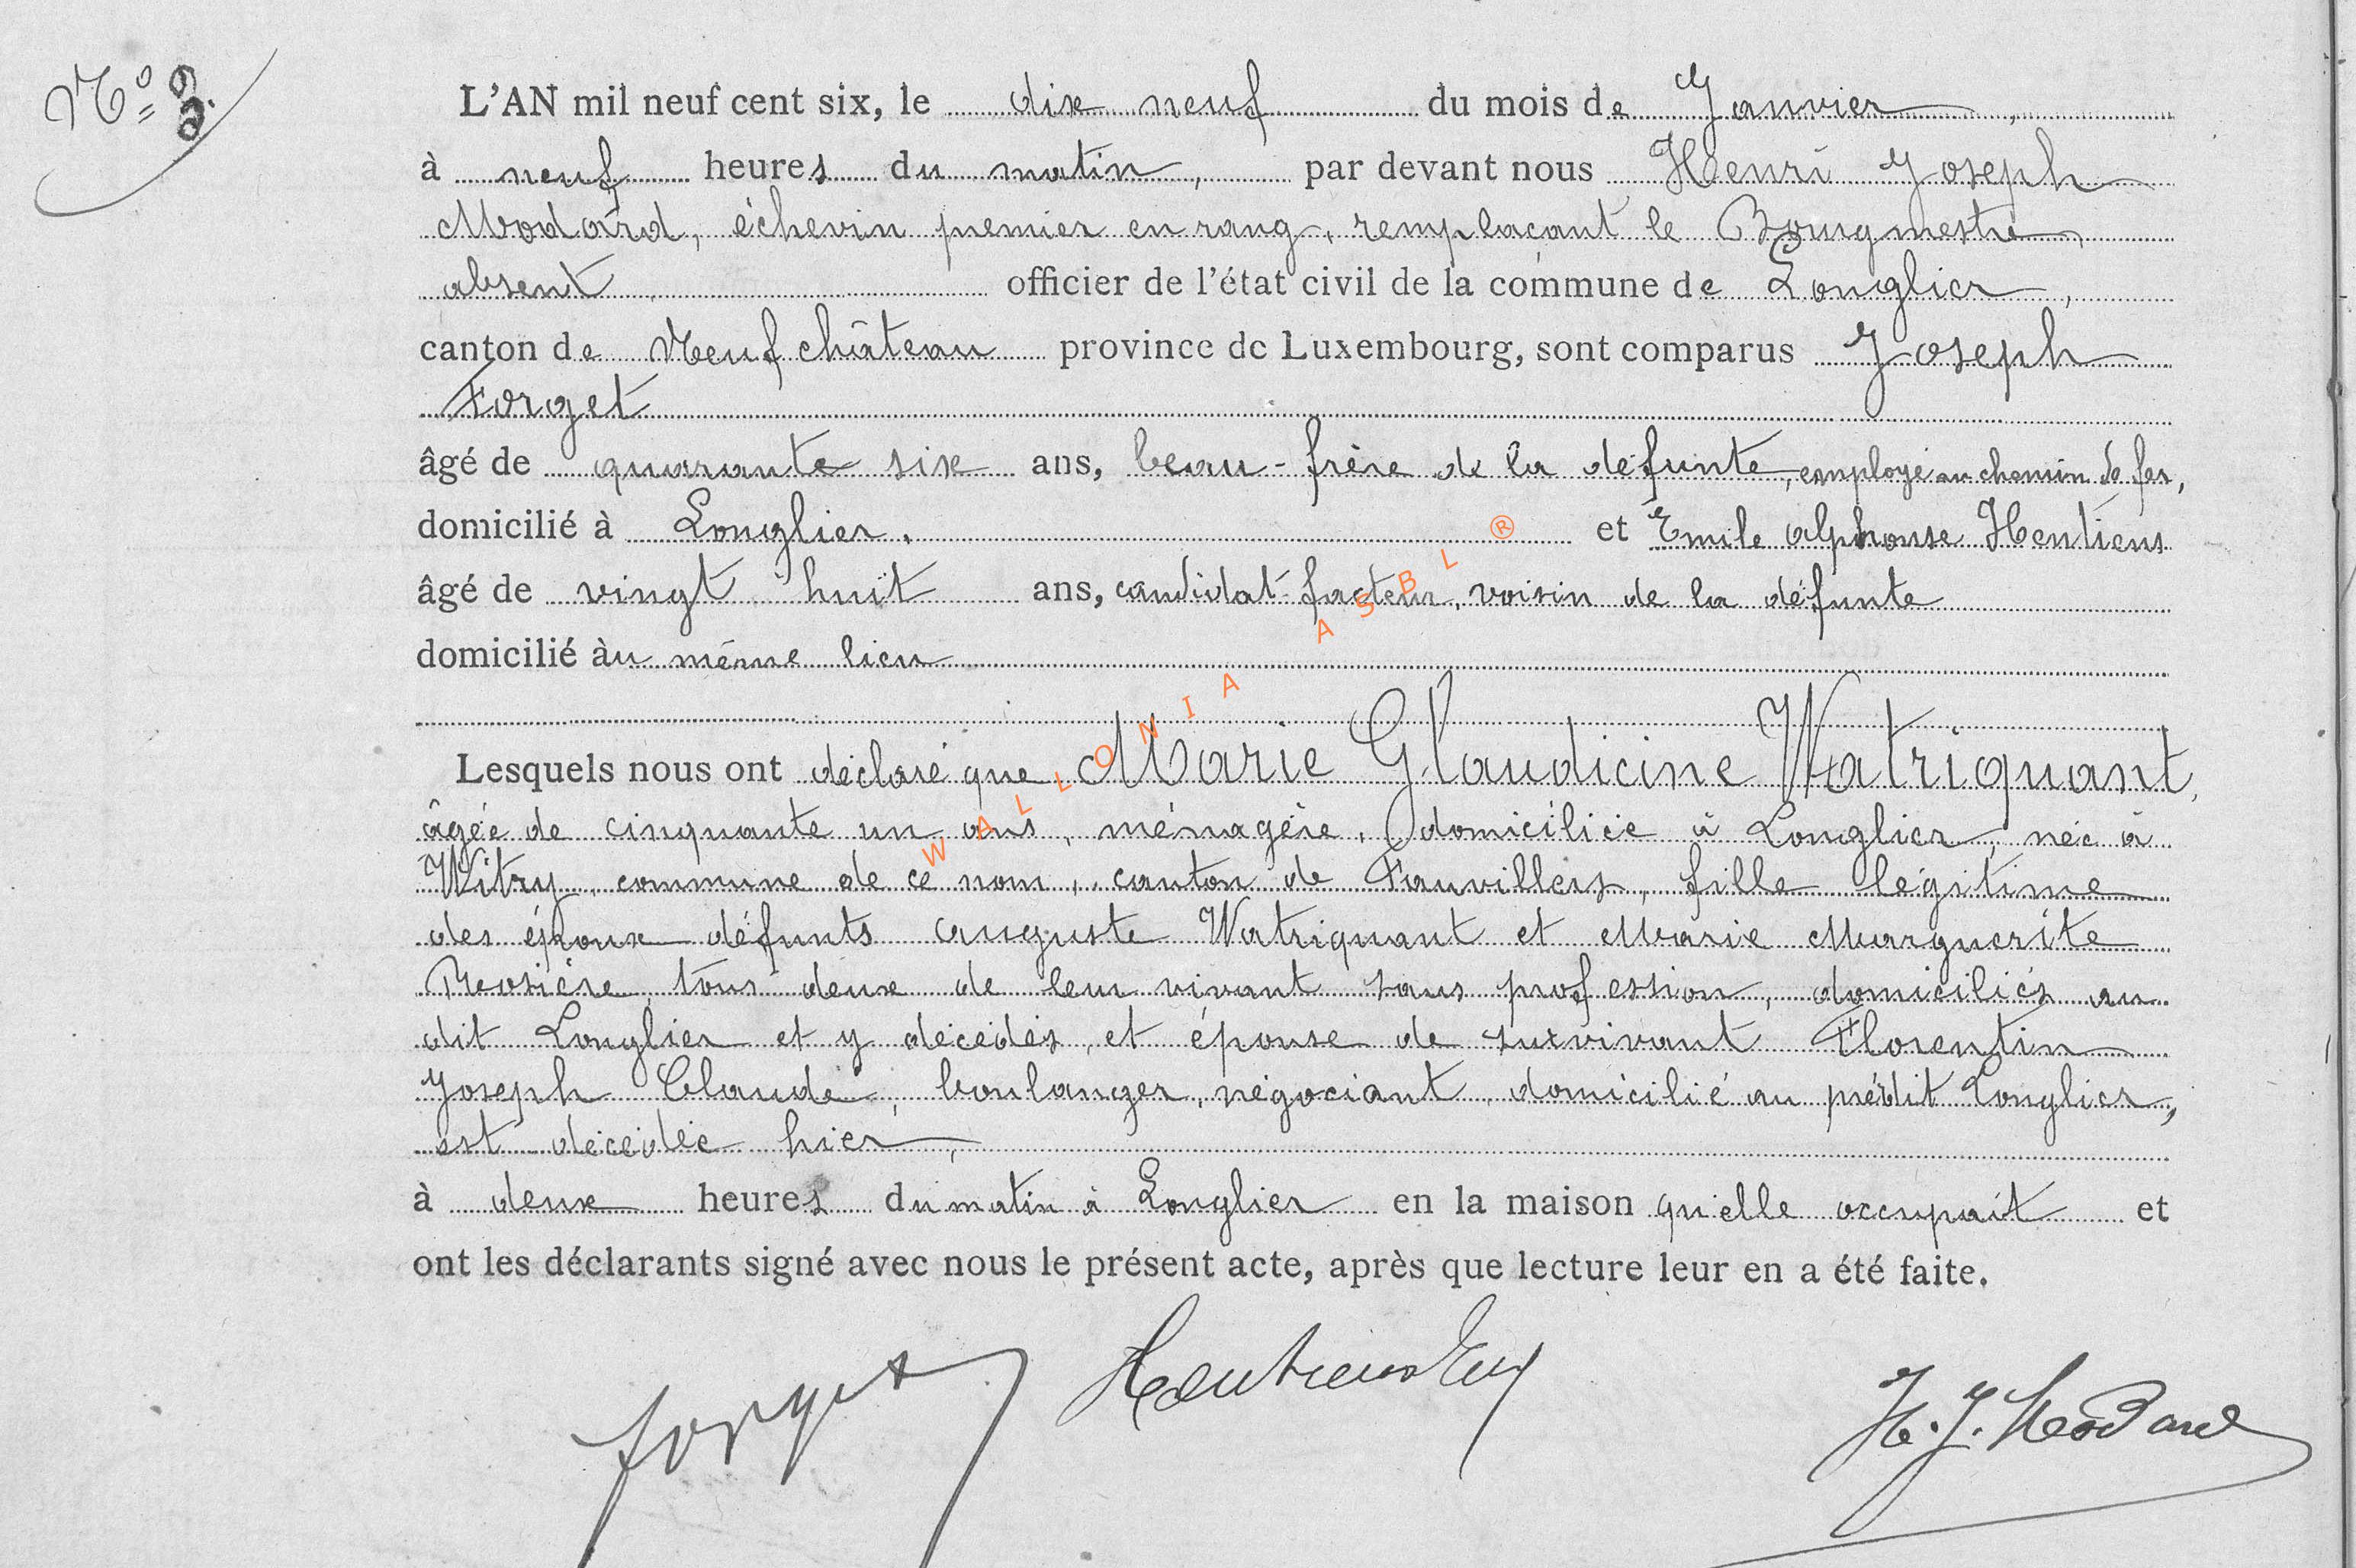 N° 9.
L'AN mil neuf cent six, le dix neuf du mois de Janvier,
à neuf heures du matin, par devant nous Henri Joseph
Modard, échevin premier en rang, remplaçant le Bourgmestre
absent officier de l'état civil de la commune de Longlier,
canton de Neufchâteau province de Luxembourg, sont comparus Joseph
Forget
âgé de quarante six ans, beau-frère de la défunte, employé au chemin de fer,
domicilié à Longlier. et Emile Alphonse Hentiens
âgé de vingt huit ans, candidat facteur, voisin de la défunte
domicilié àu même lieu
Lesquels nous ont déclaré que Marie Glaudicine Watriquant,
âgée de cinquante un ans, ménagère, domiciliée à Longlier, née à
Witry, commune de ce nom, canton de Fauvillers, fille légitime
des époux défunts Auguste Watriquant et Marie Marguerite
tous deux de leur vivant sans profession, domiciliés au
dit Longlier et y décédés, et épouse de survivant Florentin
Joseph Claude, boulanger, négociant, domicilié au prédit Longlier,
est décédée hier,
à deux heures du matin à Longlier en la maison qu'elle occupait et
ont les déclarants signé avec nous le présent acte, après que lecture leur en a été faite.
Forget Hentiens Em H. J. Modard
WALLONIA ASBL ®